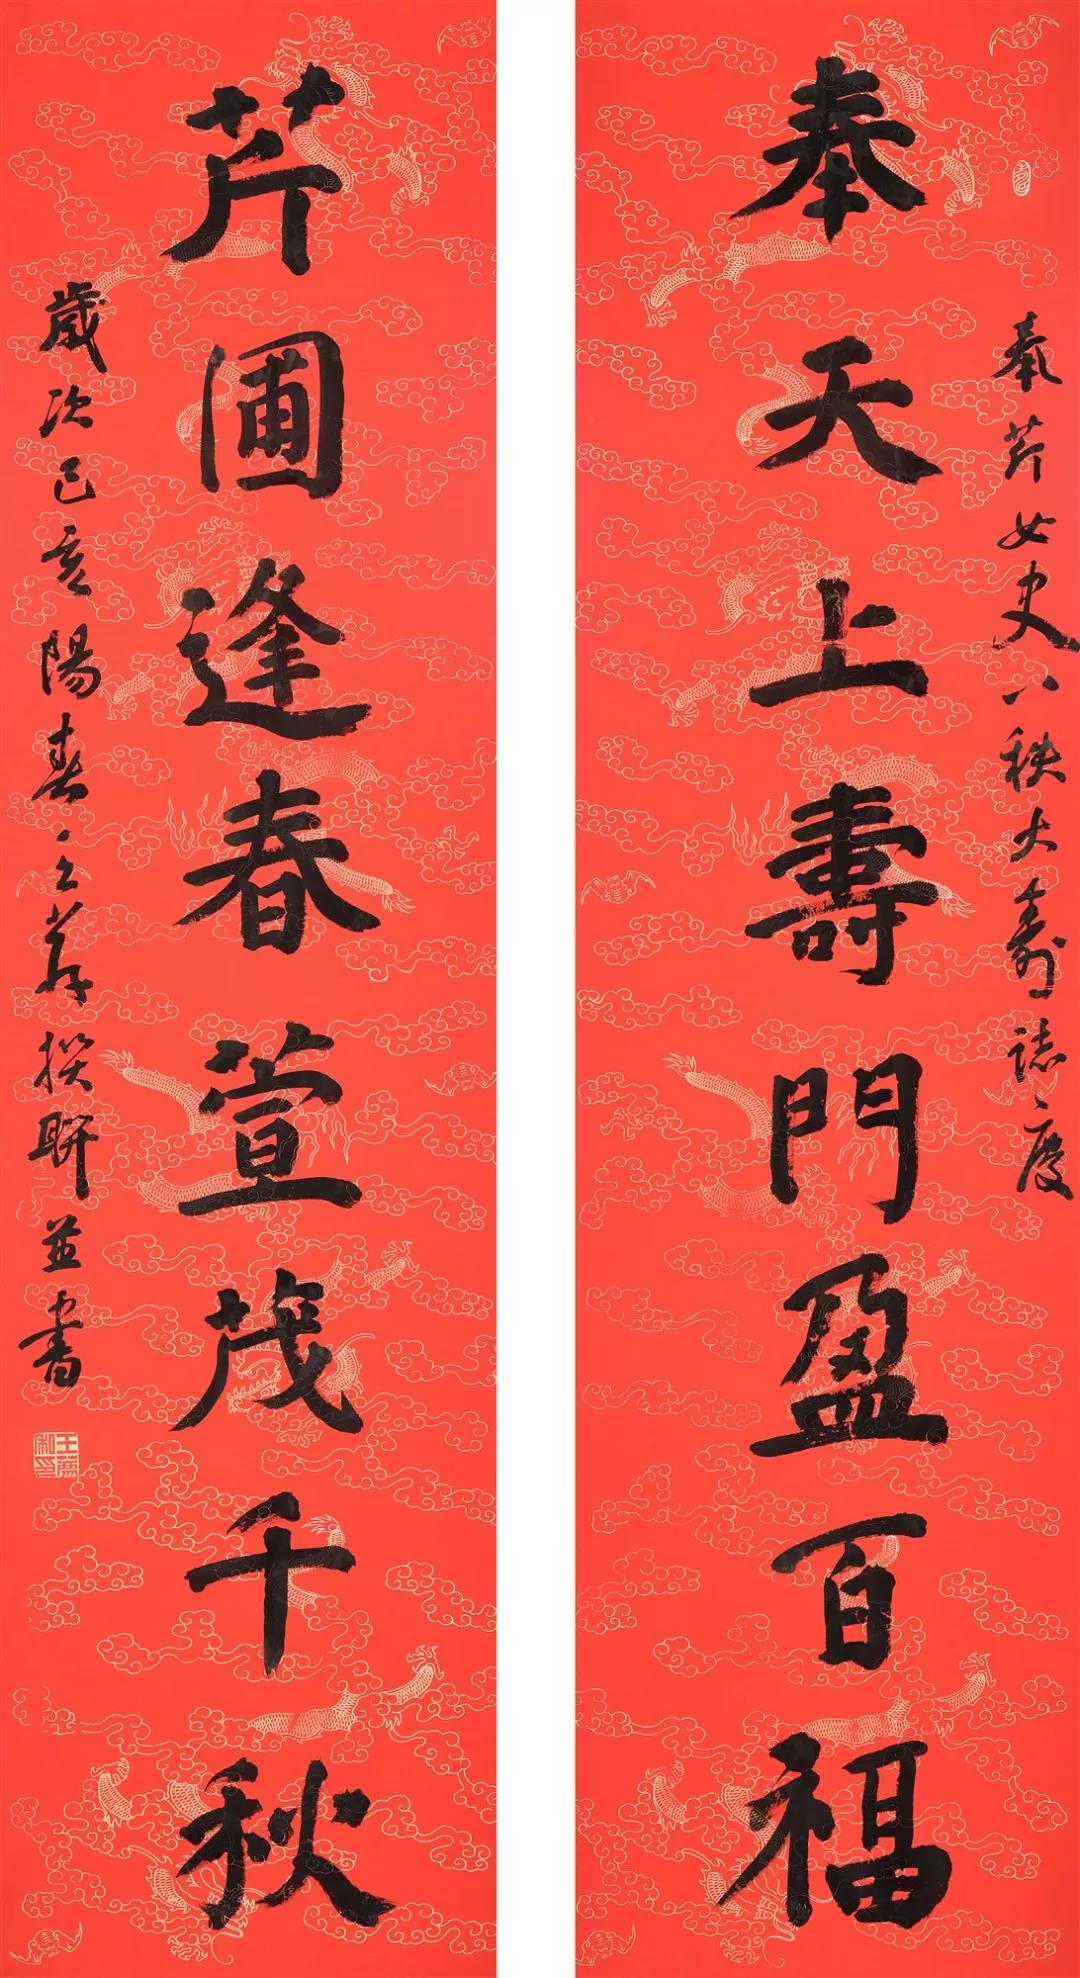 奉芹女史八秩大壽誌慶
奉天上壽門盈百福
芹圃逢春萱茂千秋
歲次己亥陽春王撰聯並書